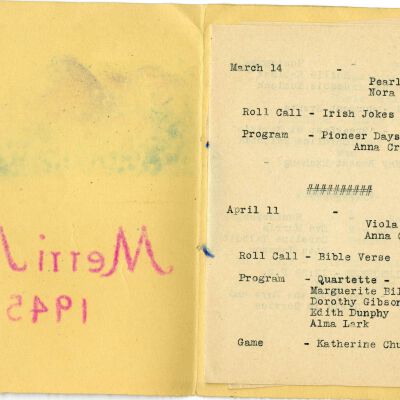 Merri
1945
March 14 -
Pearl
Nora
Roll Call - Irish Jokes
Program - Pioneer Days
Anna Cr
-
##########
April 11 -
Viola
Anna
Roll Call - Bible Verse
Program - Quartette -
Marguerite Bil
Dorothy Gibson
Edith Dunphy
Alma Lark
Game - Katherine Chu